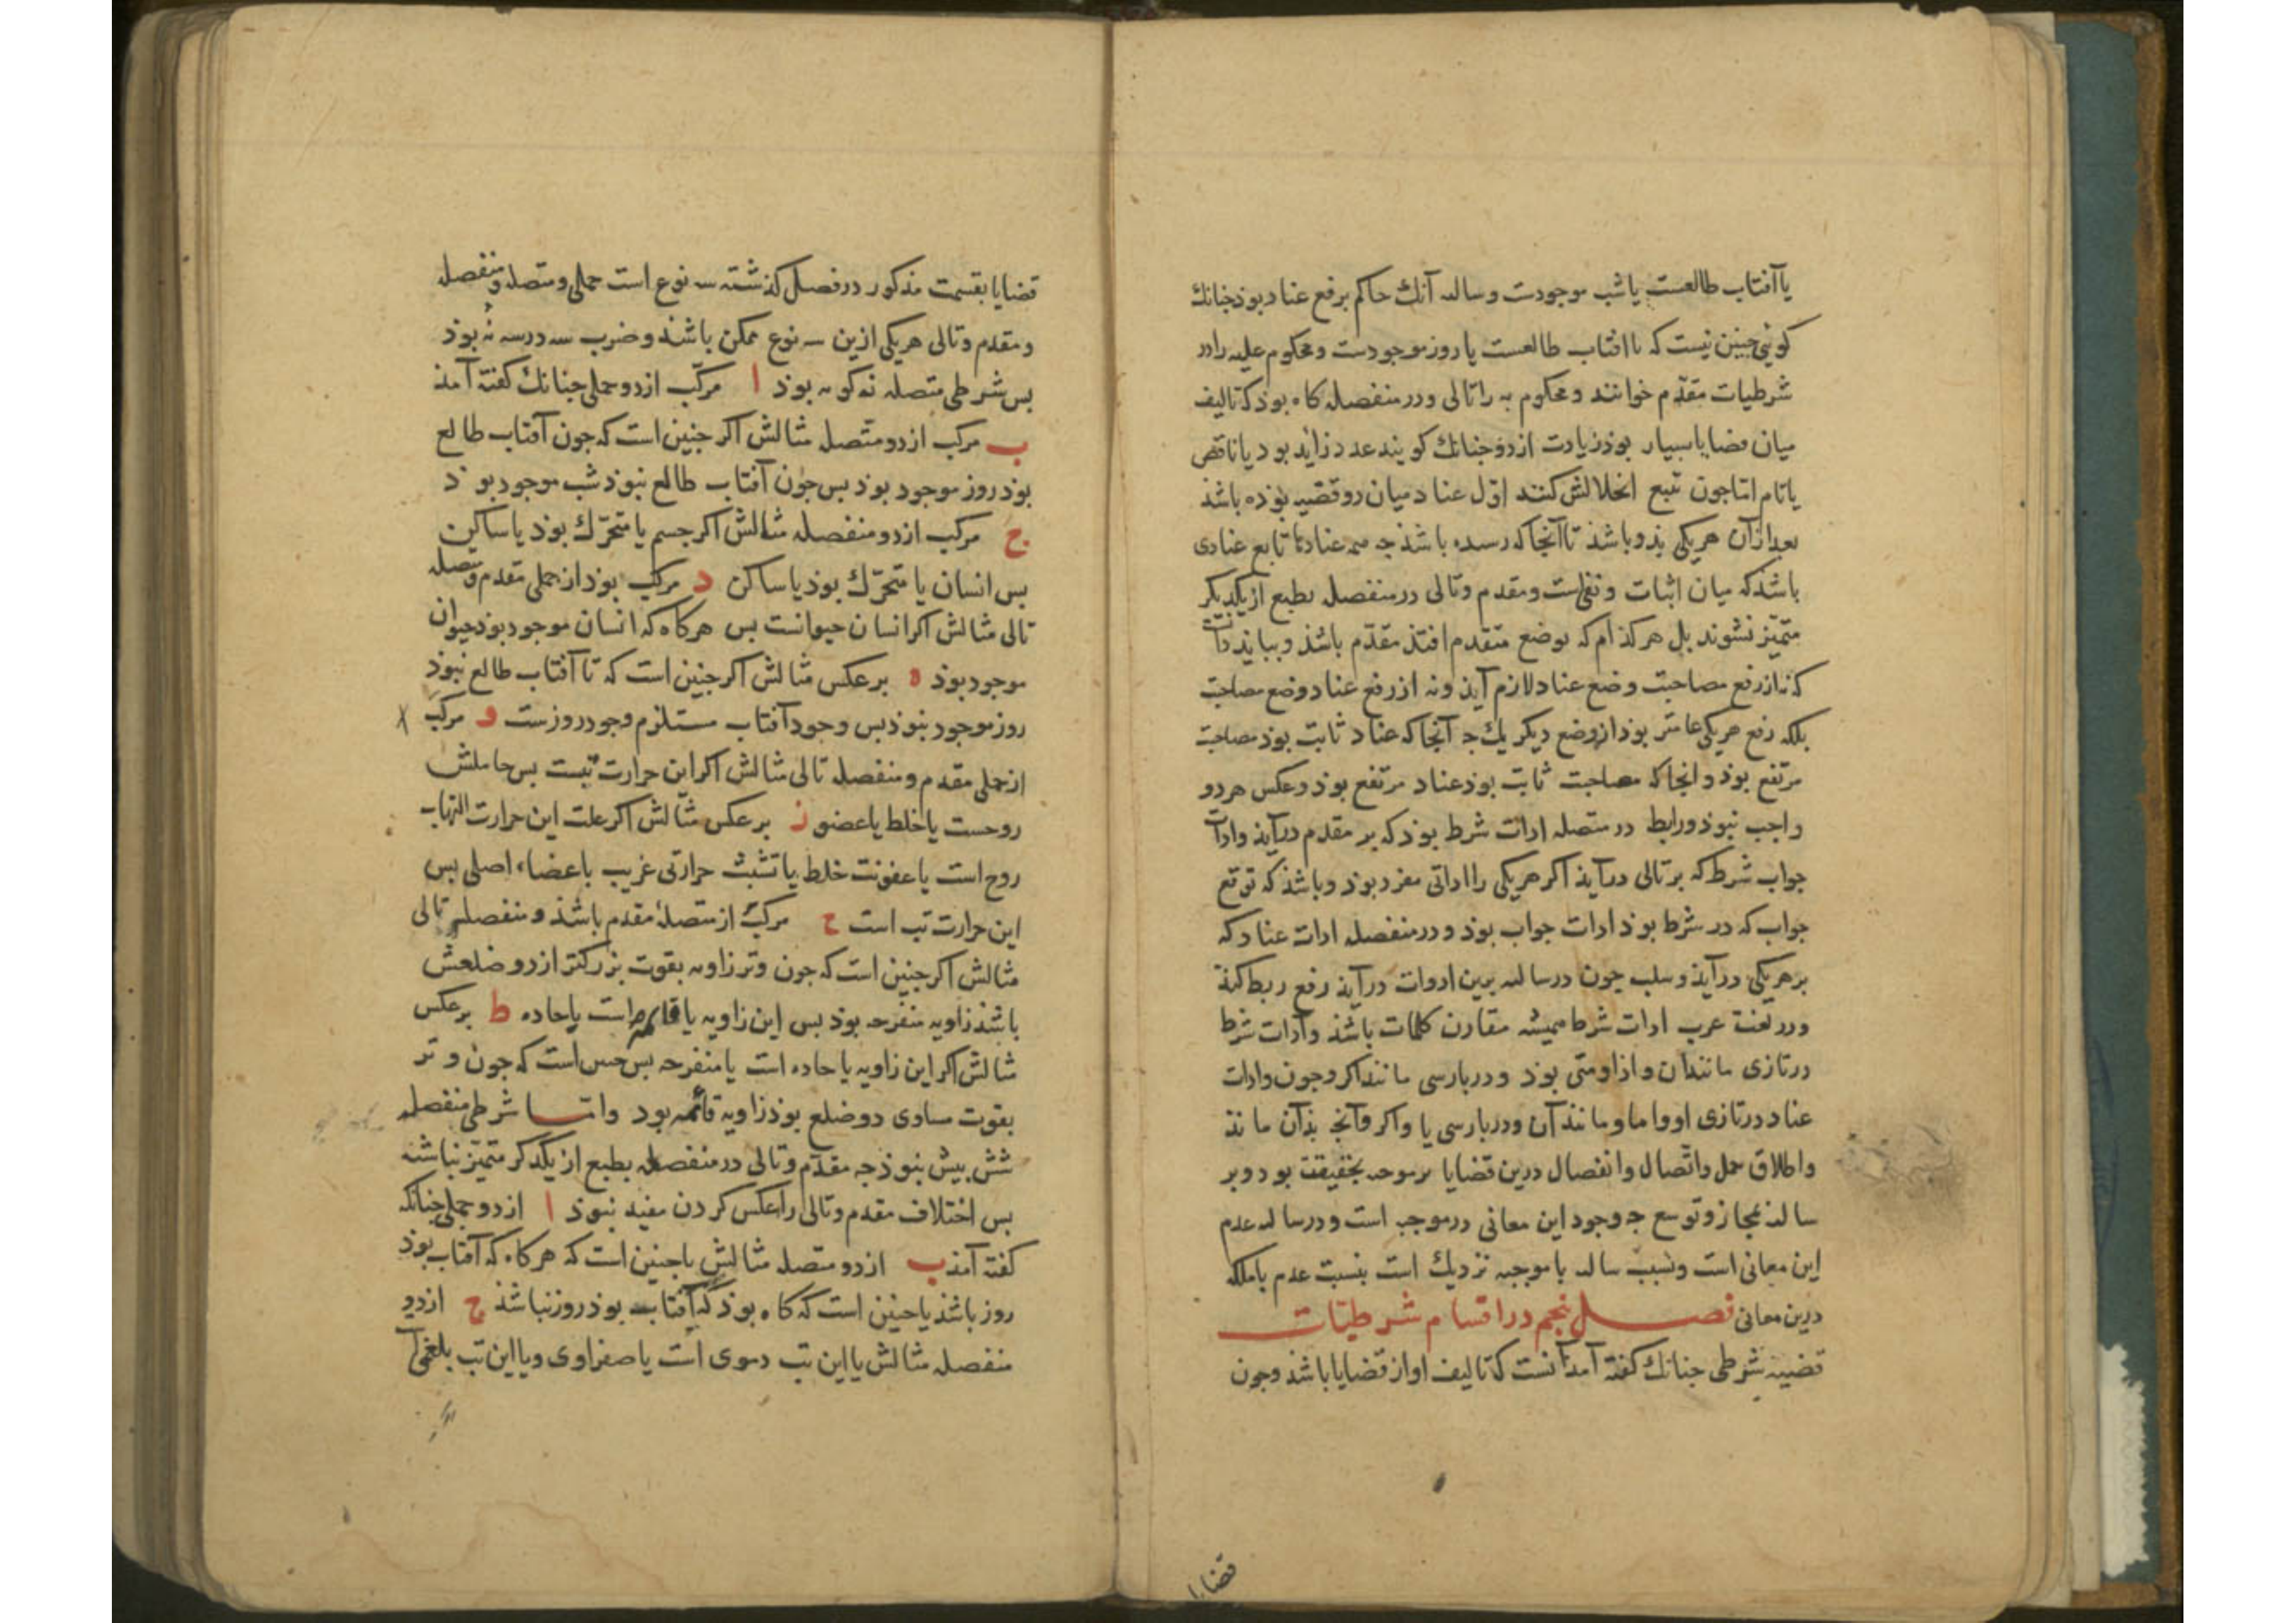 یا آفتاب طالعست یا شب موجودست و سالبه آنک حاکم برفع عناد بوذ جنانك
کوئی جنین نیست که یا افتاب طالعست یا روز موجودست و محکوم علیه را در
شرطیات مقدّم خوانند و محکوم به را تالی و در منفصله کاه بوذ که تالیف
میان قضایا بسیار بوذ زیادت از دو جنانك کویند عدد زاید بود یا ناقص
یا تام امّا جون تتبع انحلالش کنند اوّل عناد میان دو قضیه بوذه باشذ
بعد از آن هریکی بذو باشذ تا آنجا که رسده باشذ جه همه عنادها تابع عنادی
باشذ که میان اثبات و نفی‌است و مقدم و تالی در منفصله بطبع از یکدیکر
متمیّز نشوند بل هر کذام که بوضع متقدم افتذ مقدّم باشذ و ببایذ دانست
که نه از رفع مصاحبت وضع عناد لازم آیذ و نه از رفع عناد وضع مصاحبت
بلکه رفع هریکی عامتر بوذ از وضع دیکر یك جه آنجا که عناد ثابت بوذ مصاحبت
مرتفع بوذ و انجا که مصاحبت ثابت بوذ عناد مرتفع بوذ و عکس هر دو
واجب نبوذ و رابط در متصله ادات شرط بوذ که بر مقدم درآیذ و ادات
جواب شرط که بر تالی درآیذ اکر هریکی را اداتی مفرد بوذ و باشذ که توقع
جواب که در شرط بوذ ادات جواب بوذ و در منفصله ادات عناد که
بر هریکی درآیذ و سلب جون در سالبه برین ادوات درآیذ رفع ربط کند
و در لغت عرب ادات شرط همیشه مقارن کلمات باشذ و ادات شرط
در تازی مانند ان و اذا و متی بوذ و در بارسی مانند اکر و جون و ادات
عناد در تازی او و اما و مانند آن و در بارسی یا و اکر و آنج بذآن ماند
و اطلاق حمل و اتّصال و انفصال درین قضایا بر موجبه بحقیقت بود و بر
سالبه بمجاز و توسع جه وجود این معانی در موجب است و در سالبه عدم
این معانی است و نسبت سالبه با موجبه نزدیك است بنسبت عدم با ملکه
درین معانی فصل پنجم در اقسام شرطیّات
قضیه شرطی جنانك کفته آمد آنست که تالیف او از قضایا باشذ و جون
قضایا
قضایا بقسمت مذکور در فصل کذشته سه نوع است حملی و متصله و منفصله
و مقدم و تالی هریکی ازین سه نوع ممکن باشند و ضرب سه در سه نُه بوذ
بس شرطی متصله نه کونه بوذ ا مرکّب از دو حملی جنانك کفته آمذ
ب مرکب از دو متّصل مثالش اکر جنین است که جون آفتاب طالع
بوذ روز موجود بوذ بس جون آفتاب طالع نبوذ شب موجود بوذ
ج مرکب از دو منفصله مثالش اکر جسم یا متحرّك بوذ یا ساکن
بس انسان یا متحرّك بوذ یا ساکن د مرکب بوذ از حملی مقدم و متصله
تالی مثالش اکر انسان حیوانست بس هرکاه که انسان موجود بوذ حیوان
موجود بوذ ه بر عکس مثالش اکر جنین است که تا آفتاب طالع نبوذ
روز موجود نبوذ بس وجود آفتاب مستلزم وجود روزست و مرکب
از حملی مقدم و منفصله تالی مثالش اکر این حرارت تبست بس حاملش
روحست یا خلط یا عضو ز بر عکس مثالش اکر علت این حرارت التهاب
روح است یا عفونت خلط یا تشبث حرارتی غریب باعضاء اصلی بس
این حرارت تب است ح مرکّب از متصلهٔ مقدم باشذ و منفصله تالی
مثالش اکر جنین است که جون وتر زاویه بقوت بزرکتر از دو ضلعش
باشذ زاویه منفرجه بوذ بس این زاویه یا قایمه است یا حاده ط بر عکس
مثالش اکر این زاویه یا حاده است یا منفرجه بس جنین است که جون وتر
بقوت مساوی دو ضلع بوذ زاویه قائمه بود و امّا شرطی منفصله
شش بیش نبوذ جه مقدّم و تالی در منفصله بطبع از یکدکر متمیّز نباشند
بس اختلاف مقدم و تالی را عکس کردن مفید نبوذ ا از دو حملی جنانکه
کفته آمذ ب از دو متصله مثالش یا جنین است که هرکاه که آفتاب بوذ
روز باشذ یا جنین است که کاه بوذ که آفتاب بوذ روز نباشذ ج از دو
منفصله مثالش یا این تب دموی است یا صفراوی و یا این تب بلغمی